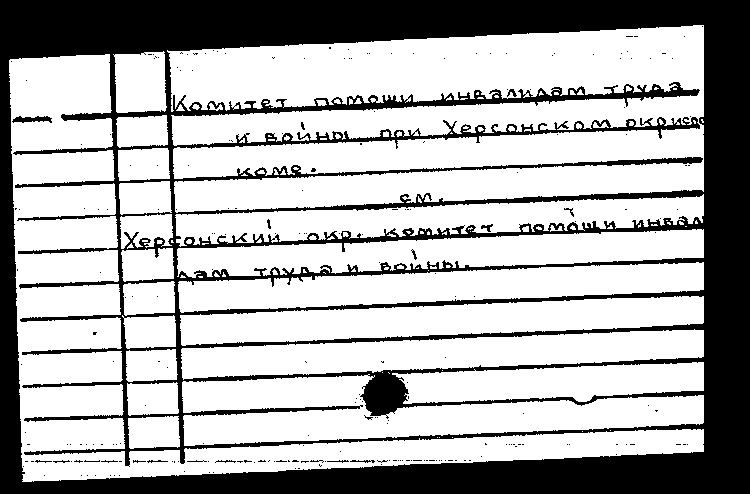 Комитет помощи инвалидам труда
и войны при Херсонском окриспол
коме.
см.
Херсонский окр. комитет помощи инвали
дам труда и войны.